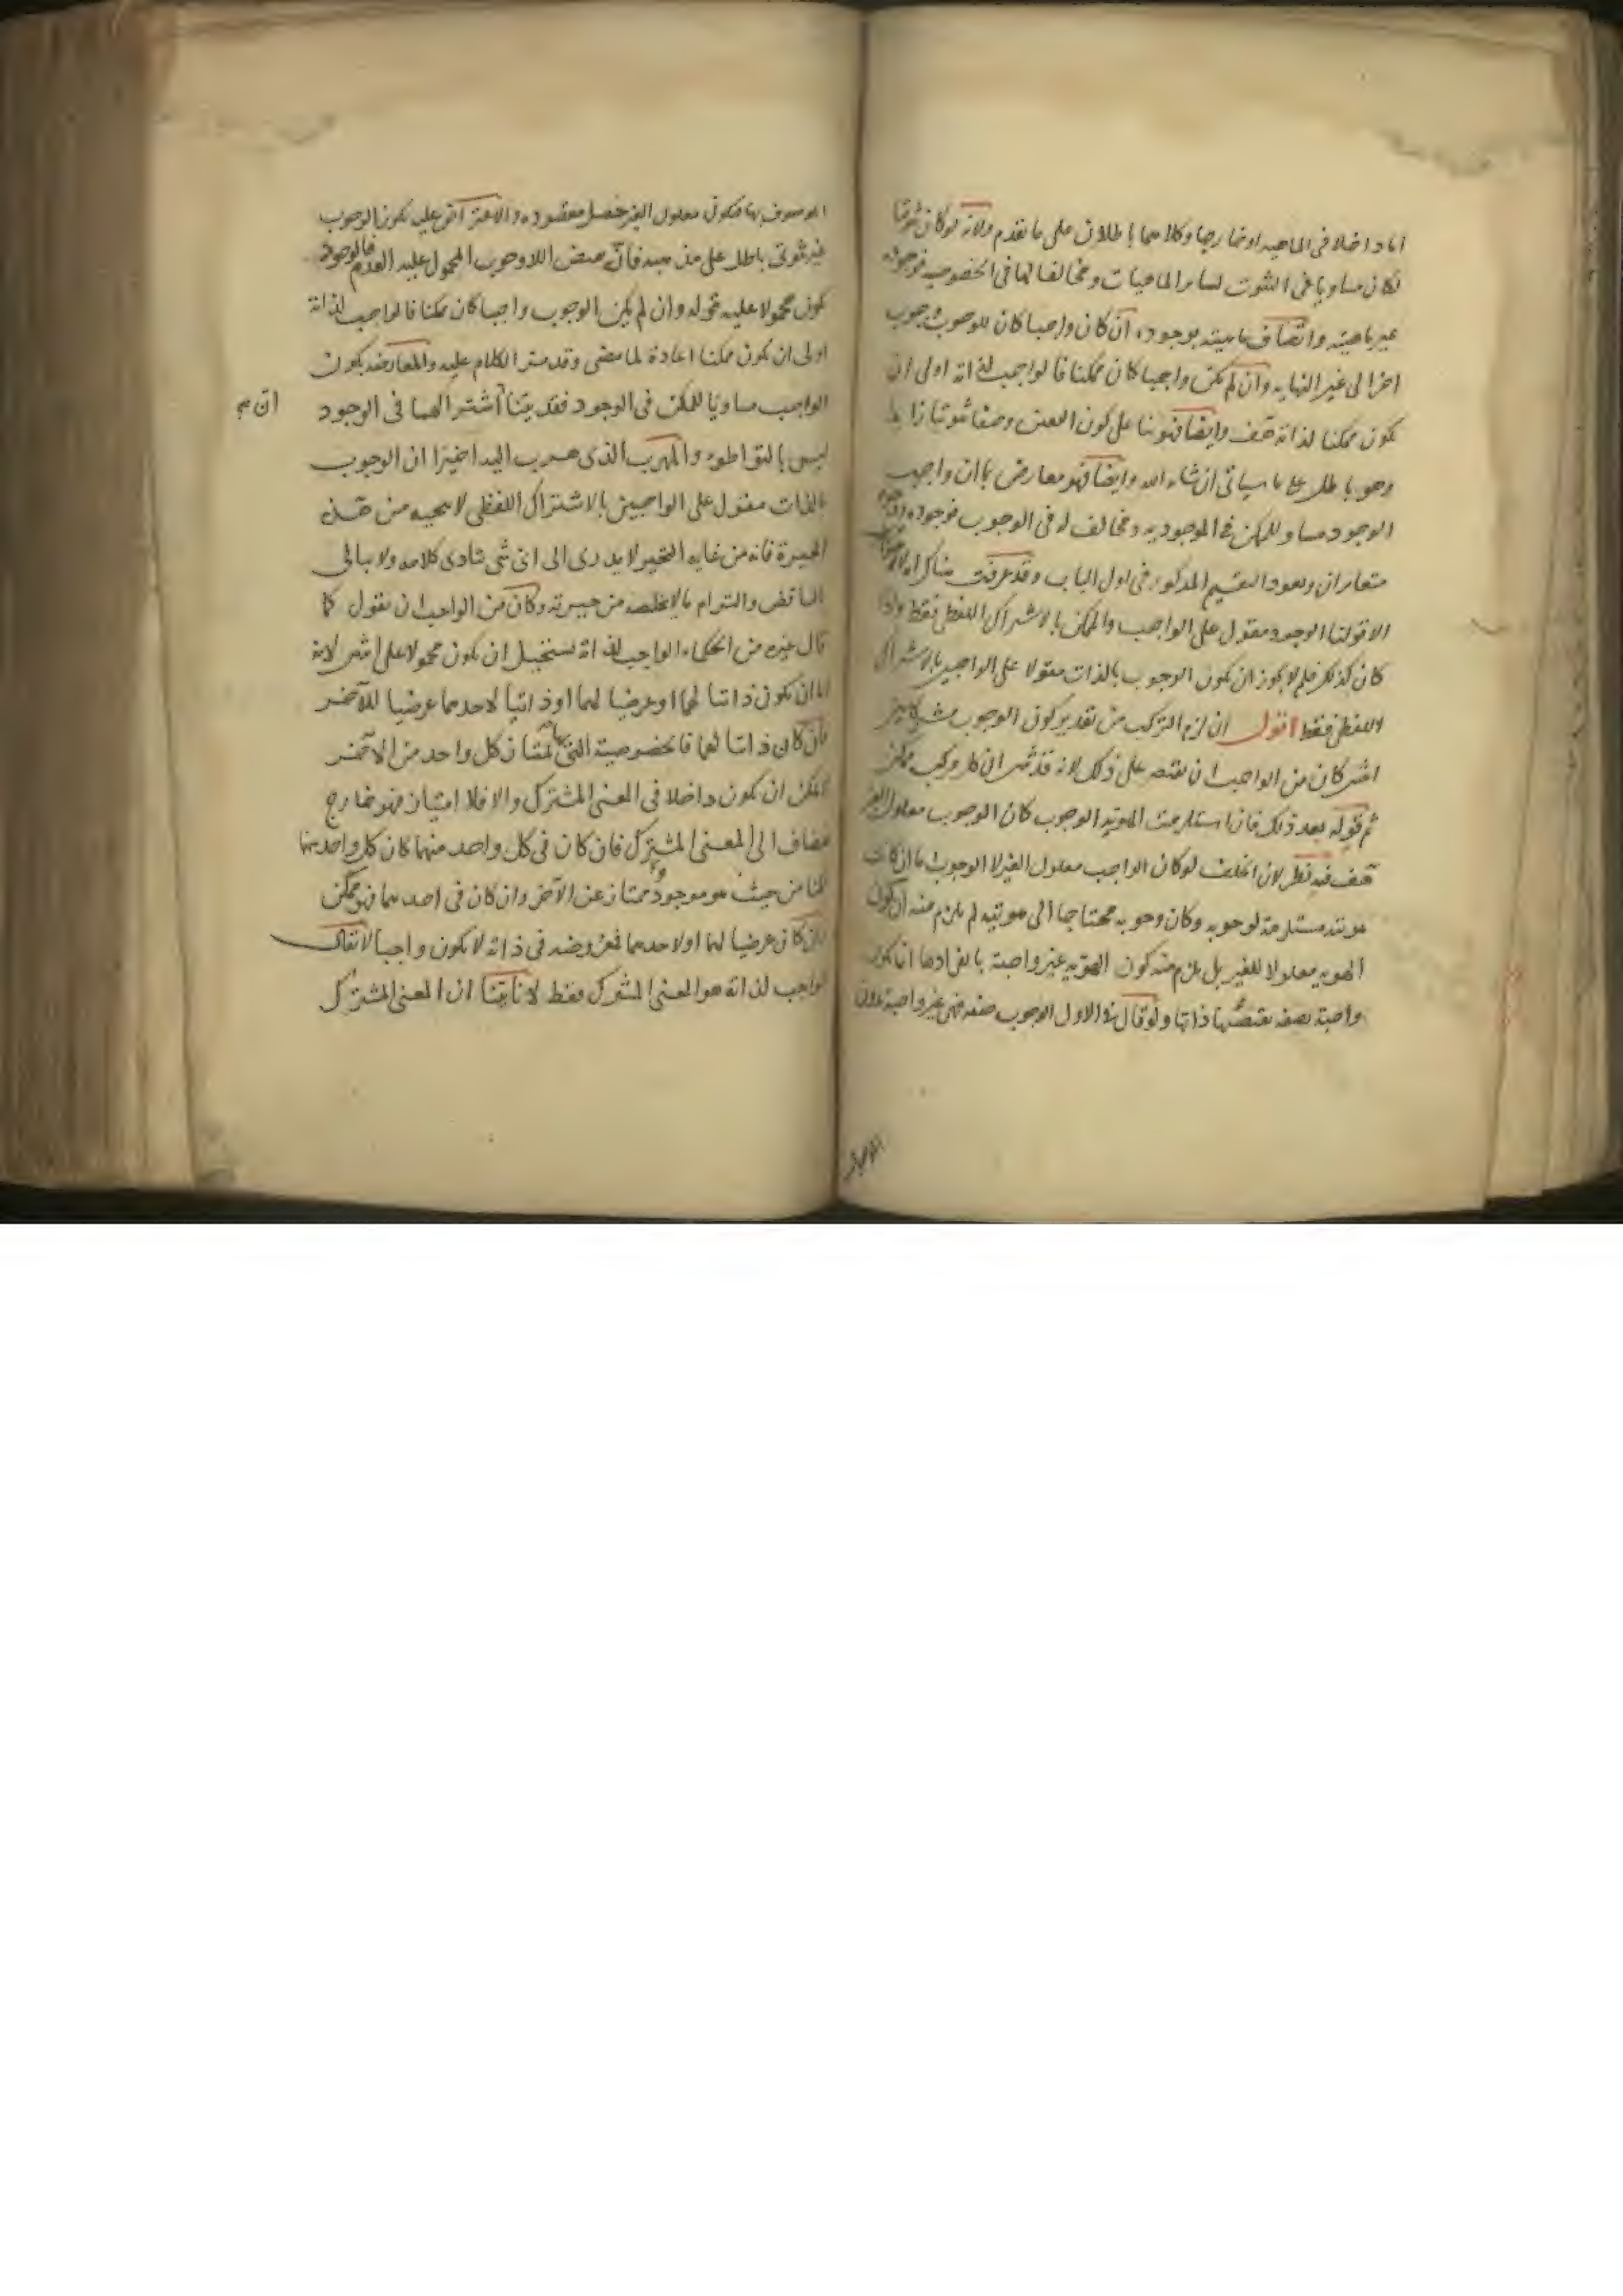 اما داخلا فى الماهيه او خارجا وكلاهما باطلان على ما تقدم ولانه لو كان ثبوتيا
لكان مساويا فى الثبوت لساير الماهيات ومخالفا لها فى الخصوصيه فوجوده
غير ماهيته واتصاف ماهيته بوجوده ان كان واجبا كان للوجوب وجوب
اخر الى غير النهايه وان لم يكن واجبا كان ممكنا فالواجب لذاته اولى ان
يكون ممكنا لذاته هف وايضا فهو بنا على كون التعين وصفا ثبوتيا زايدا
وهو باطل على ما سياتى ان شاء الله وايضا فهو معارض بان واجب
الوجود مساو للممكن فى الموجوديه ومخالف له فى الوجوب فوجوده ووجوبه
متغايران ويعود التقسيم المذكور فى اول الباب وقد عرفت هناك انه لا جواب
الا قولنا الوجود مقول على الواجب والممكن بالاشتراك اللفظى فقط واذا
كان كذلك فلم لا يجوز ان يكون الوجوب بالذات مقولا على الواجبين بالاشتراك
اللفظى فقط اقول ان لزم التركب من تقدير كون الوجوب مشتركا بين
اثنين كان من الواجب ان يقتصر على ذلك لانه قد تبين ان كل مركب ممكن
ثم قوله بعد ذلك فان استلزمت الهويه الوجوب كان الوجوب معلول الغير
هف فيه نظر لان الخلف لو كان الواجب معلول الغير لا الوجوب اما ان كانت
هويته مستلزمة لوجوبه وكان وجوبه محتاجا الى هويته لم يلزم منه ان يكون
الهويه معلولا للغير بل يلزم منه كون الهويه غير واجبة بانفرادها انما يكون
واجبة بصفه تقتضيها ذاتها ولو قال فى الاول الوجوب صفه فهى غير واجبة بدون
الموصوف بها فيكون معلول الغير حصل مقصوده والاعتراض عليه بكون الوجوب
غير ثبوتى باطل على مذهبه فان نقيض اللاوجوب المحمول عليه العدم فالوجود
يكون محمولا عليه قوله وان لم يكن الوجوب واجبا كان ممكنا فالواجب لذاته
اولى ان يكون ممكنا اعادة لما مضى وقد مر الكلام عليه والمعارضه بكون
الواجب مساويا للممكن فى الوجود فقد بينا ان اشتراكهما فى الوجود
ليس بالتواطوء والمهرب الذى هرب اليه اخيرا ان الوجوب
بالذات مقول على الواجبين بالاشتراك اللفظى لا ينجيه من هذه
الحيرة فانه من غايه التحير لا يدرى الى اى شى تتادى كلامه ولا يبالى
التناقض والتزام ما لا يخلصه من حيرته وكان من الواجب ان يقول كما
قال غيره من الحكماء الواجب لذاته يستحيل ان يكون محمولا على اثنين لانه
اما ان يكون ذاتيا لهما او عرضيا لهما او ذاتيا لاحدهما عرضيا للآخر
فان كان ذاتيا لهما فالخصوصية التى بها يمتاز كل واحد من الآخر
لا يمكن ان يكون داخلا فى المعنى المشترك والا فلا امتياز فهو خارج
مضاف الى المعنى المشترك فان كان فى كل واحد منهما كان كل واحد منهما
ممكنا من حيث هو موجود ممتاز عن الآخر وان كان فى احدهما فهو ممكن
وان كان عرضيا لهما او لاحدهما فمعروضه فى ذاته لا يكون واجبا لا يقال
الواجب لذاته هو المعنى المشترك فقط لانا بينا ان المعنى المشترك